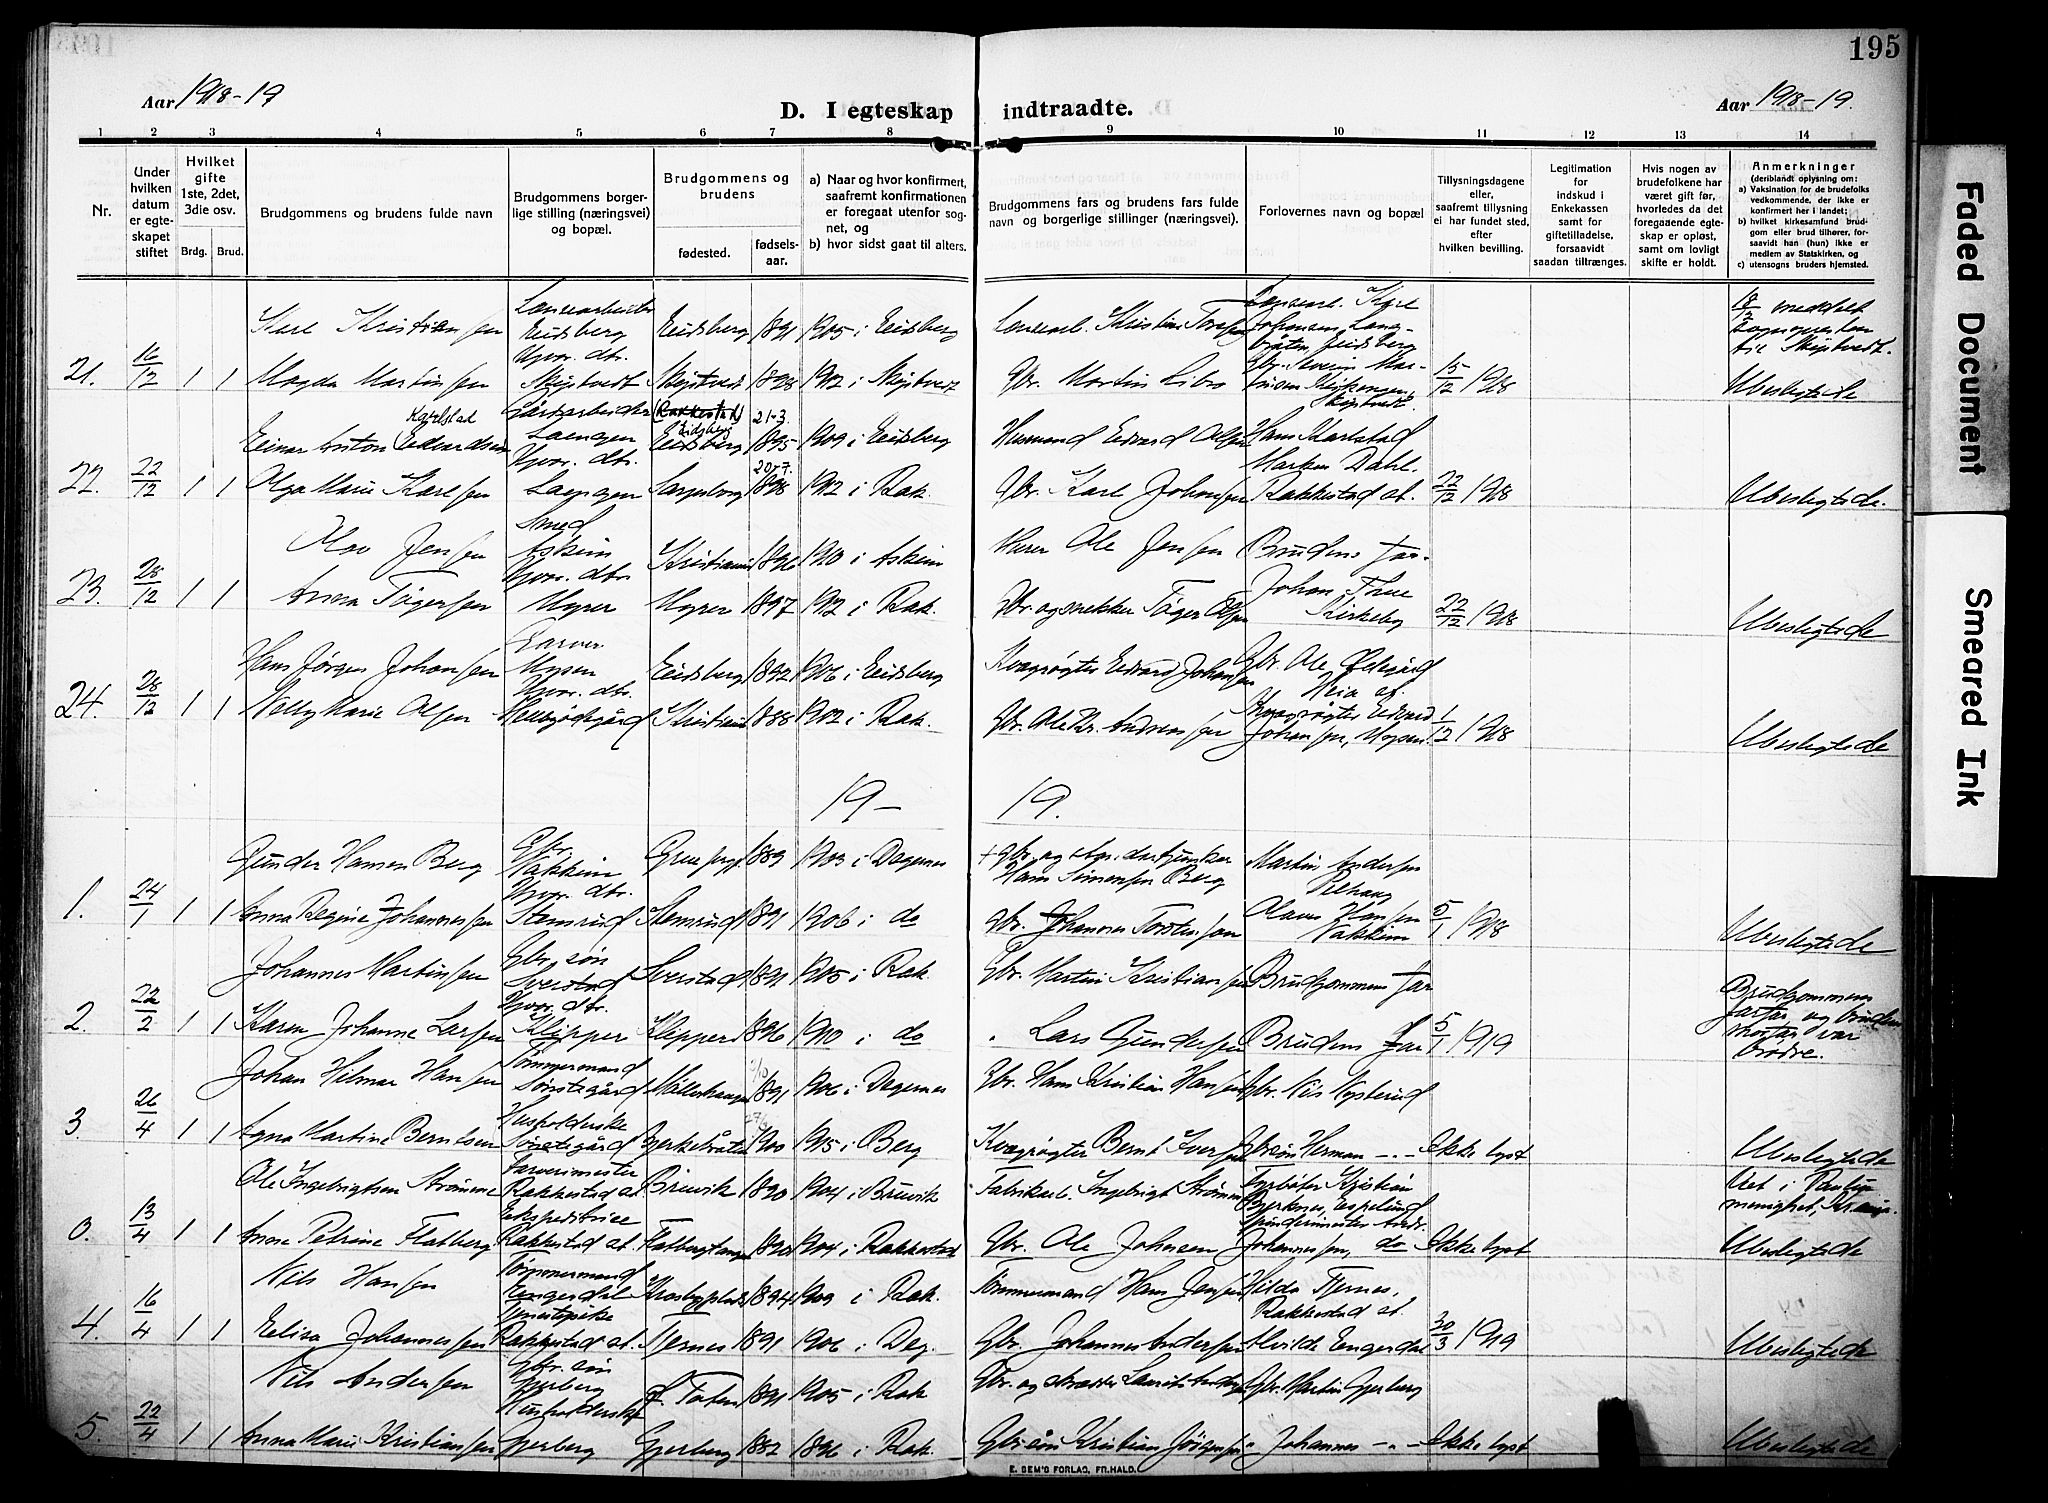 195
Aar 1918-19
D. I egteskap indtraadte.
Aar 1918-19.
1 2 3 4 5 6 7 8 9 10 11 12 13 14
Nr.
Under hvilken datum er egteskapet stiftet
Hvilket gifte 1ste, 2det, 3die osv.
Brdg. Brud.
Brudgommens og brudens fulde navn
Brudgommens borgerlige stilling (næringsvei) og bopæl.
Brudgommens og brudens
fødested. fødselsaar.
a) Naar og hvor konfirmert, saafremt konfirmationen er foregaat utenfor sognet, og
b) hvor sidst gaat til alters.
Brudgommens fars og brudens fars fulde navn og borgerlige stillinger (næringsvei).
Forlovernes navn og bopæl
Tillysningsdagene eller, saafremt tillysning ei har fundet sted, efter hvilken bevilling.
Legitimation for indskud i Enkekassen samt for giftetilladelse, forsaavidt saadan tiltrænges.
Hvis nogen av brudefolkene har været gift før, hvorledes da det foregaaende egteskap er opløst, samt om lovligt skifte er holdt.
Anmerkninger
(deriblandt oplysning om:
a) Vaksination for de brudefolks vedkommende, der ikke er konfirmert her i landet;
b) hvilket kirkesamfund brudgom eller brud tilhører, forsaavidt han (hun) ikke er medlem av Statskirken, og
c) utensogns bruders hjemsted.
Karl Kristiansen Eidsberg Eidsberg 1891 1905 i Eidsberg Kristian Karl Johansen 18/12 meddelt
21. 16/12 1 1 Magda Martinsen Skiptvedt Skiptvedt 1898 1912 i Skiptvedt Gbr. Martin Libro Skiptvedt 15/12 1918 til Skiptvedt. Ubeslegtede
Einar Anton Edvardsen Karlstad Gårdarbeider (Rakkestad) Eidsberg 21-3 1895 1909 i Eidsberg Husmand Edvard Olsen Hans Karlstad
22. 22/12 1 1 Olga Marie Karlsen Hjvær. dtr. Sarpsborg 20-7 1898 1912 i Rak. Gbr. Karl Johansen Markus Dahl. Rakkestad st. 22/12 1918 Ubeslegtede.
Olav Jensen Smed Askim Kristiania 1896 1910 i Askim Murer Ole Jensen Brudens far
23. 28/12 1 1 Anna Tøgersen Hjvær. dtr. 1897 1912 i Rak. Gbr. og snekker Tøger Olsen Johan Thue Kirkeby 22/12 1918 Ubeslegtede
Hans Jørgen Johansen Garver Mysen Eidsberg 1892 1906 i Eidsberg Kvægrøgter Edvard Johansen Gbr. Ole Østgård Heia st.
24. 28/12 1 1 Nelly Marie Olsen Hjvær. dtr. Kristiania 1888 1902 i Rak. Gbr. Ole Kr. Andreassen Kvægrøgter Edvard Johansen, Mysen. 1/12 1918 Ubeslegtede
19— 19.
Gunder Hansen Berg Gbr. Nakkim 1889 1903 i Degernes Hans Simensen Berg Martin Andersen
1. 24/1 1 1 Anna Regine Johannessen Hjvær. dtr. Stemsrud Stemsrud 1891 1906 i do Gbr. Johannes Torstensen Olaves Hansen Nakkim 5/1 1918 Ubeslegtede
Johannes Martinsen Gbr. søn Sverstad Sverstad 1891 1905 i Rak. Gbr. Martin Kristiansen Brudgommens far Brudgommens farfar og brudens morfar var brødre.
2. 22/2 1 1 Karen Johanne Larsen Hjvær. dtr. Klipper Klipper 1896 1910 i do " Lars Gundersen Brudens far 5/1 1919
Johan Hilmar Hansen Tømmermand Sønstegård 1891 1906 i Degernes Gbr. Hans Kristian Hansen Gbr. Nils Nysterud
3. 26/4 1 1 Agna Martine Berntsen Husholderske Sønstegård 1900 1915 i Berg Kvægrøgter Bernt Iversen Gbrsøn Herman -"- Ikke lyst Ubeslegtede
Ole Ingebrigtsen Strømme Farverimester Rakkestad st. Bruvik 1890 1904 i Bruvik Fabrikarb. Ingebrigt Strømme Kristian Bjerknes, Espelund Viet i
0. 13/4 1 1 Anne Petrine Flatberg Ekspeditrice Rakkestad st. 1890 1904 i Rakkestad Gbr. Ole Johnsen Johannessen, do Ikke lyst Ubeslegtede
Nils Hansen Tømmermand Engerdal 1894 1909 i Rak. Tømmermand Hans Jensen Hilda Tjernes, Rakkestad st.
4. 16/4 1 1 Elisa Johannessen Tjenestepike Rakkestad st. Tjernes 1891 1906 i Deg. Gbr. Johannes Andersen Alvilde Engerdal 30/3 1919 Ubeslegtede
Nils Andersen Gbr. søn Gjerberg Ø. Toten 1891 1905 i Rak Gbr. og Gbr. Martin Gjerberg
5. 22/4 1 1 Anna Marie Kristiansen Husholderske Gjerberg Gjerberg 1882 1896 i Rak. Gbrsøn Kristian Jørgensen " Johannes -"- Ikke lyst Ubeslegtede
E. SEM'S FORLAG, FR.HALD.
Faded Document
Smeared Ink